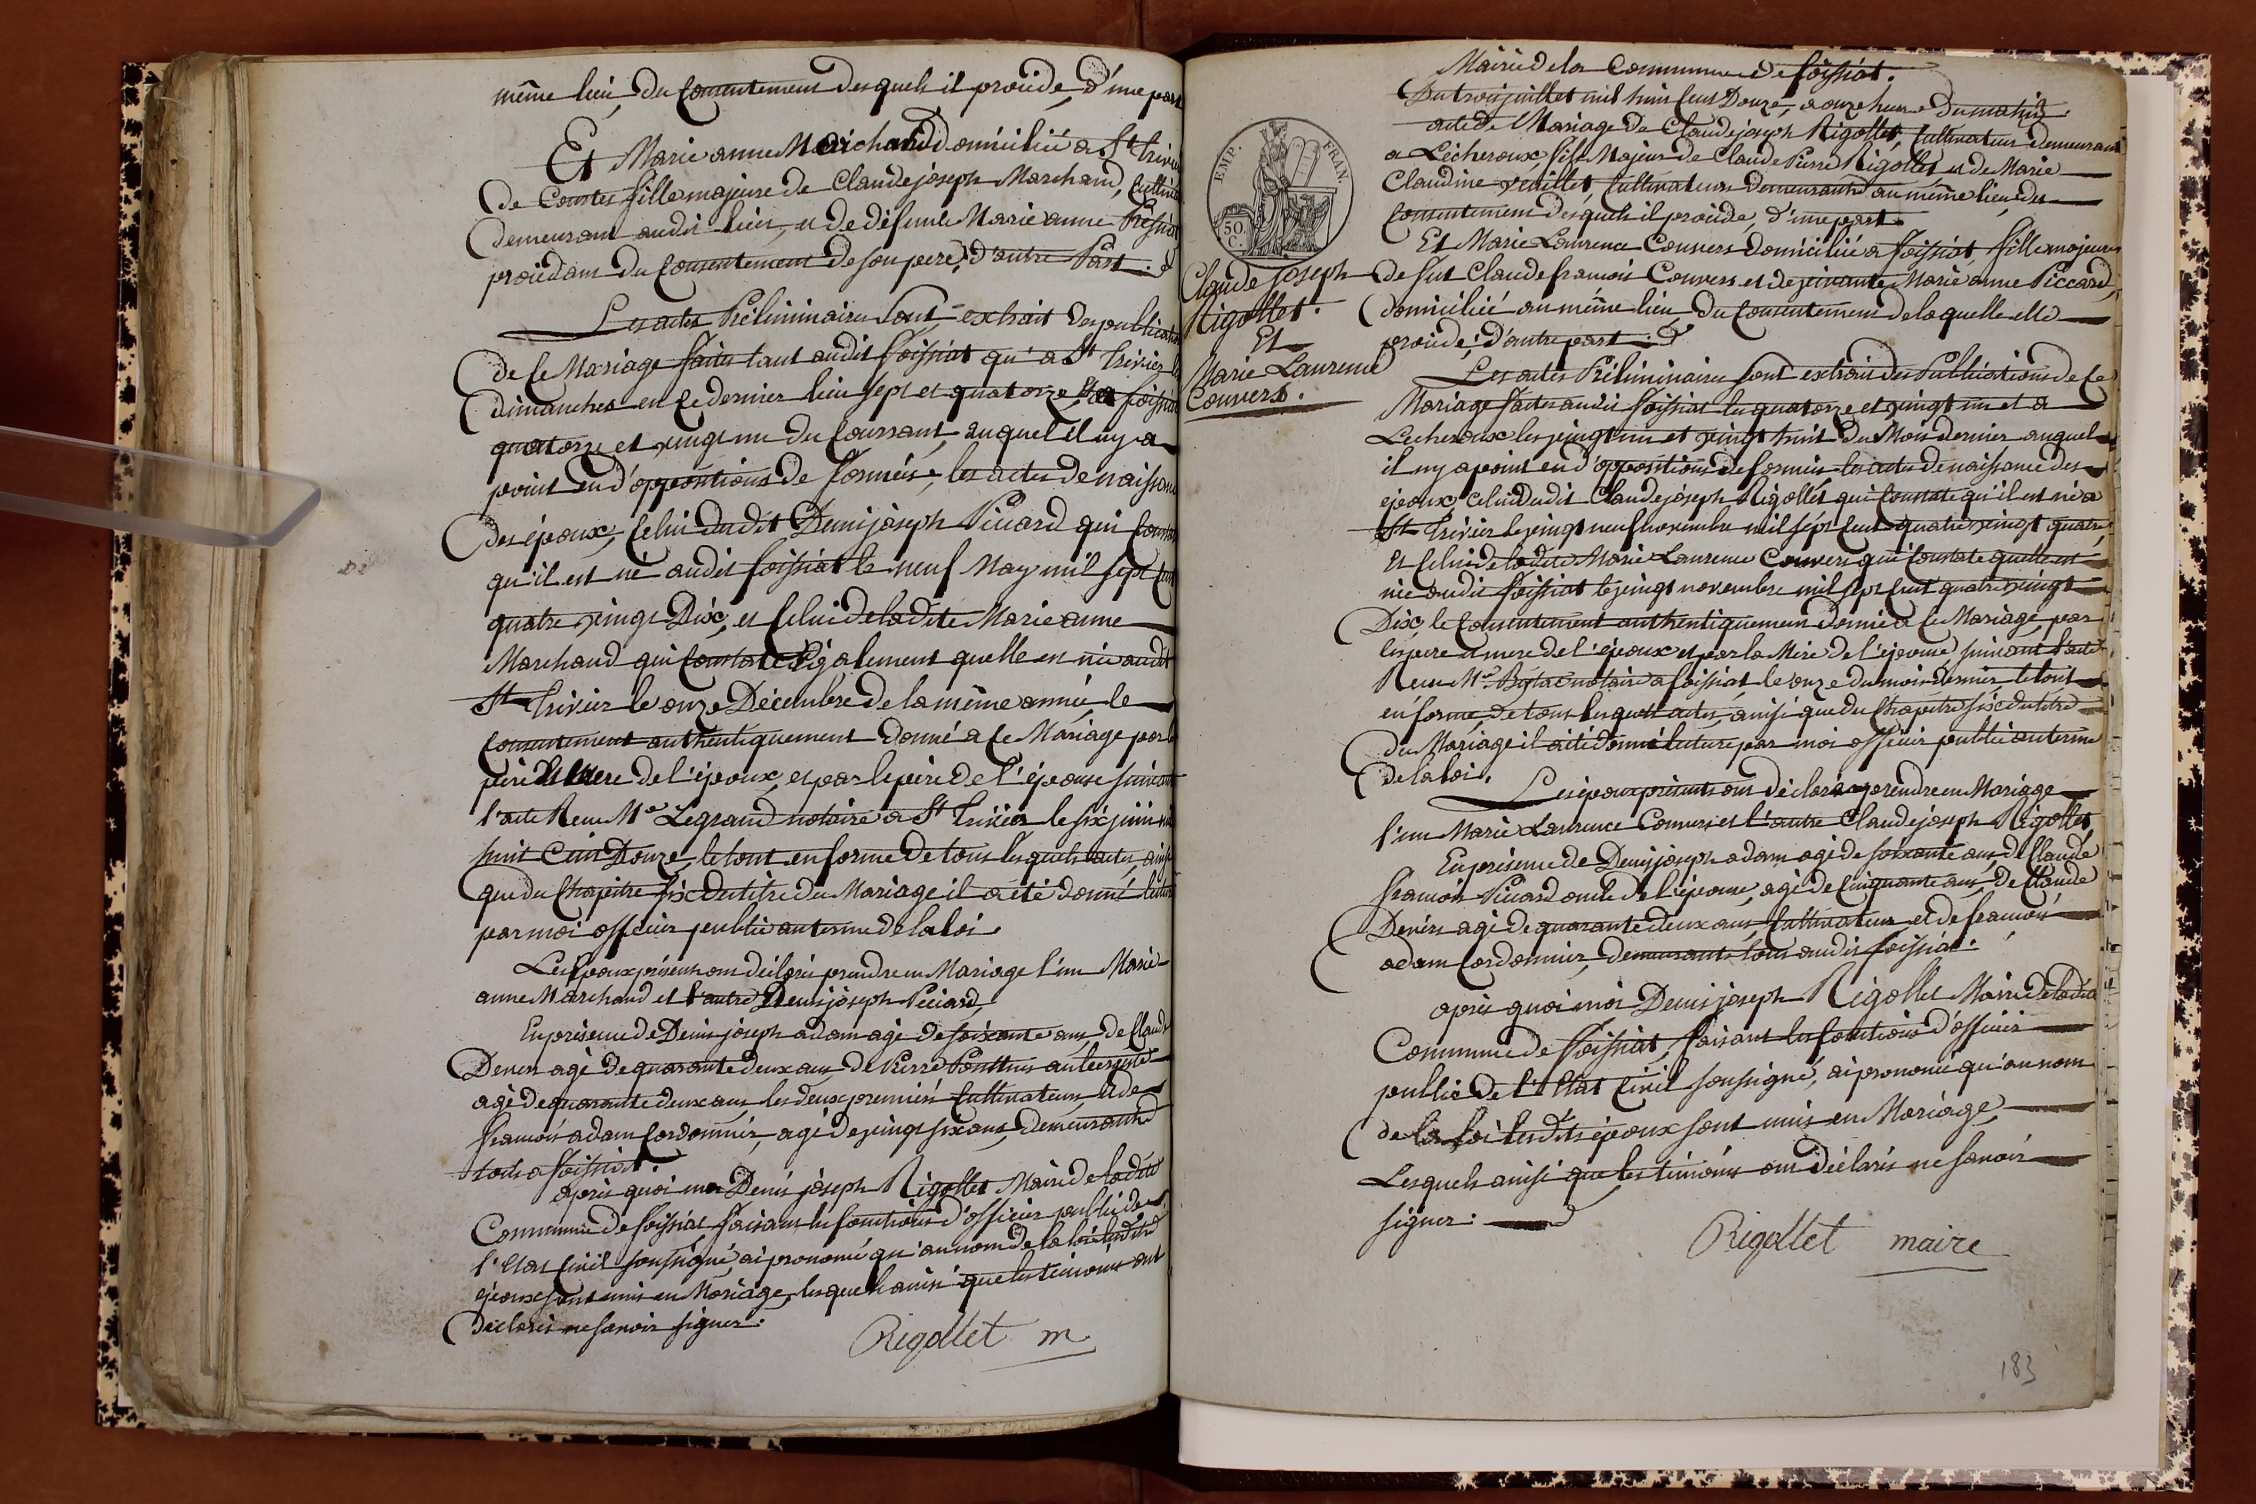 même lieu, du Consentement desquels il procède, d'une part
Et Marie anne Marchand domiciliée a St Trivier
de Courtes fille majeure de Claude joseph Marchand, Cultiva
demeurant audit lieu, et de défunte Marie anne
procédant du Consentement de son pere, d'autre Part.
Les actes Préliminaires sont extrait des publications
de Ce Mariage faites tant audit foissiat qu'a St Trivier les
dimanches en Ce dernier lieu sept et quatorze, et a foissiat
quatorze et vingt un du Courrant, auquel il ny a
point eu d'oppositions de formées, les actes de naissance
des époux, Celui dudit Denis joseph Picard qui Constate
qu'il est né audit foissiat le neuf May mil sept Cent
quatre vingt Dix, et Celui de ladite Marie anne
Marchand qui Constate Egalement quelle est née audit
St Trivier le onze Décembre de la même année, le
Consentement authentiquement donné a Ce Mariage par les
père et mere de l'époux, et par le père de l'épouse suivant
l'acte Recu Me Legrand notaire a St Trivier le six juin mil
huit Cent Douze, le tout en forme de tous lesquels actes, ainsi
que du Chapitre six du titre du Mariage il a été donné lecture
par moi officier public au terme de la loi.
Les Epoux présents ont déclaré prendre en Mariage l'un Marie
anne Marchand et l'autre Denis joseph Piccard,
En présence de Denis joseph adam agé de soixante ans, de Claude
Devers agé de quarante deux ans, de Pierre
agé de quarante deux ans, les deux premiers Cultivateurs, et de
francois adam Cordonnier, agé de vingt six ans, demeurants
tous a foissiat.
après quoi moi Denis joseph Rigollet Maire de ladite
Commune de foissiat, faisant les fonctions d'officier public de
l'Etat Civil soussigné, ai prononcé qu'au nom de la loi lesdits
époux sont unis en Mariage, lesquels ainsi que les témoins ont
déclarés ne savoir signer.
Rigollet m
Mairie de la Commune de foissiat.
Du trois juillet mil huit Cent Douze, a onze heure du matin
acte de Mariage de Claude joseph Rigollet, Cultivateur demeurant
a Lécheroux, fils Majeur de Claude Pierre Rigollet et de Marie
Claudine veuillet, Cultivateurs demeurants au même lieu, du
Consentement desquels il procède, d'une part.
Et Marie Laurence Convers domiciliée a foissiat, fille majeure
de fut Claude francois Convers et de vivante Marie anne Piccard,
domiciliée au même lieu, du Consentement de laquelle elle
procède, d'autre part.
EMP. FRAN.
50. C.
Claude Joseph
Rigollet.
Et
Marie Laurence
Convers.
Les actes Préliminaires sont extrait des Publications de Ce
Mariage faites audit foissiat les quatorze et vingt un et a
Lecheroux les vingt un et vingt huit du Mois dernier auquel
il ny a point eu d'oppositions de formées les actes de naissance des
époux, Celui dudit Claude joseph Rigollet qui Constate qu'il est né a
St Trivier le vingt neuf novembre mil sept Cent quatre vingt quatre,
Et Celui de ladite Marie Laurence Convers qui Constate quelle est
née audit foissiat le vingt novembre mil sept Cent quatre vingt
Dix, le Consentement authentiquement donné a Ce Mariage par
les pere et mere de l'époux et par la Mere de l'épouse suivant l'acte
Recu Me notaire a foissiat le onze du mois dernier le tout
en forme, de tous lesquels actes, ainsi que du Chapitre six du titre
du Mariage il a été donné lecture par moi officier public au terme
de la loi.
Les époux présents ont déclaré prendre en Mariage
l'un Marie Laurence Convers et l'autre Claude joseph Rigollet,
En présence de Denis joseph adam agé de soixante ans, de Claude
francois Picard oncle de l'épouse, agé de Cinquante ans, de Claude
Devers agé de quarante deux ans, Cultivateurs et de francois
adam Cordonnier, demeurants tous audit foissiat.
après quoi moi Denis joseph Rigollet Maire de ladite
Commune de foissiat, faisant les fonctions d'officier
public de l'Etat Civil soussigné, ai prononcé qu'au nom
de la loi lesdits époux sont unis en Mariage,
Lesquels ainsi que les témoins ont déclarés ne savoir
signer.
Rigollet maire
183